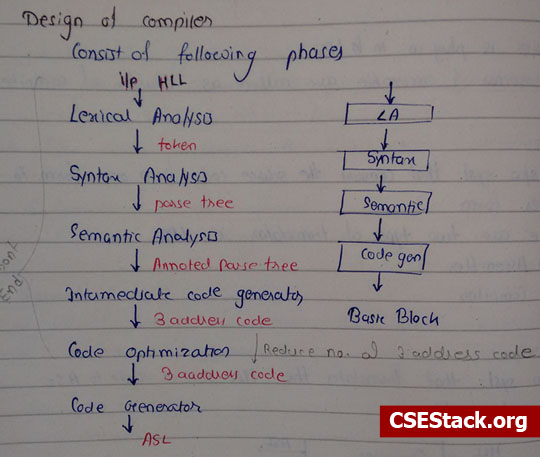 Design of compiler
Consist of following phases
i/p HLL
Lexical Analysis
token
Syntax Analysis
parse tree
Semantic Analysis
Annoted Parse tree
Intermediate code generator
3 address code
Code optimization
Reduce no. of 3 address code
3 aaddress code
Code Generator
ASL
LA
Syntax
Semantic
Code gen
Basic Block
CSEStack.org